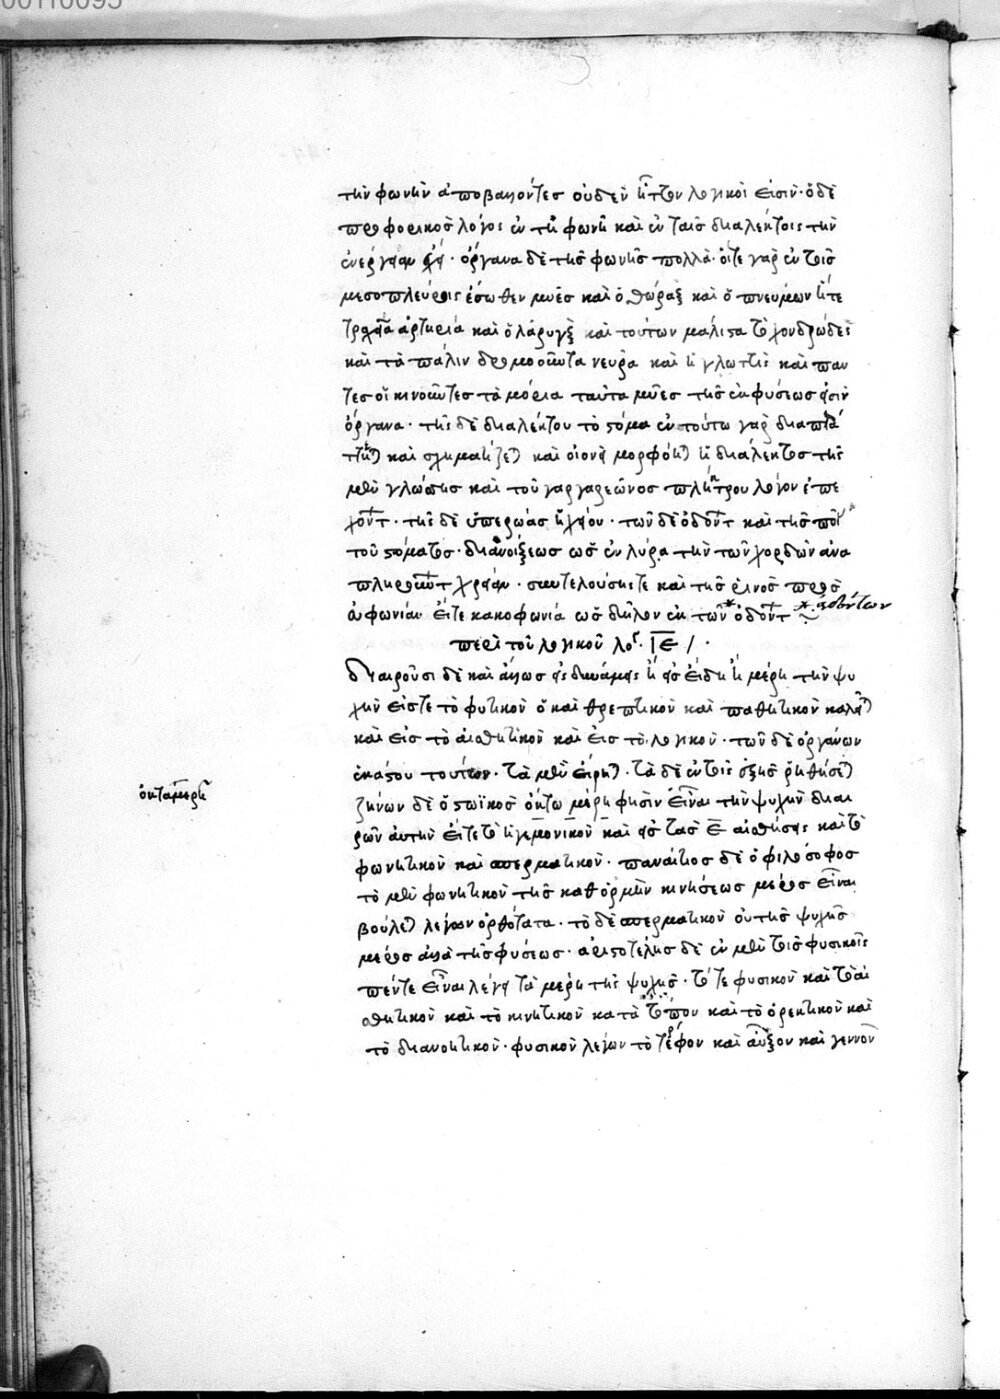 τὴν φωνὴν ἀποβαλόντες οὐδὲν ἧττον λογικοί εἰσιν· ὁ δὲ
προφορικὸς λόγος ἐν τῇ φωνῇ καὶ ἐν ταῖς διαλέκτοις τὴν
ἐνέργειαν ἔχει· ὄργανα δὲ τῆς φωνῆς πολλά· οἵτε γὰρ ἐν τοῖς
μεσοπλευρίοις ἔσωθεν μύες καὶ ὁ θώραξ καὶ ὁ πνεύμων ἥ τε
τραχεῖα ἀρτηρία καὶ ὁ λάρυγξ καὶ τούτων μάλιστα τὸ χονδρῶδες
καὶ τὰ πάλιν δρομοῦντα νεῦρα καὶ ἡ γλωττὶς καὶ παν
τες οἱ κινοῦντες τὰ μόρια ταῦτα μῦες τῆς ἐκφύσεως εἰσὶν
ὄργανα· τῆς δὲ διαλέκτου τὸ στόμα ἐν τούτω γὰρ διαπλά
τεται καὶ σχηματίζεται καὶ οἱονεὶ μορφοῦται ἡ διάλεκτος τῆς
μὲν γλώσσης καὶ τοῦ γαργαρεῶνος πλήκτρου λόγον ἐπε
χόντων· τῆς δὲ ὑπερώας ἠχείου· τῶν δὲ ὀδόντων καὶ τῆς ποι
τοῦ στόματος· διανοίξεως ὡς ἐν λύρα τὴν τῶν χορδῶν ἀνα
πληρούντων χρείαν· συντελούσης τε καὶ τῆς ῥινὸς πρὸς
εὐφωνίαν εἴτε κακοφωνία ὡς δῆλον ἐκ τῶν ὀδόντων
περὶ τοῦ λογικοῦ λόγου· ΙΕ
διαιροῦσι δὲ καὶ ἄλλως εἰς δυνάμεις ἢ εἰς εἴδη ἢ μέρη τὴν ψυ
χὴν εἴς τε τὸ φυτικὸν ὃ καὶ θρεπτικὸν καὶ παθητικὸν καλεῖται
καὶ εἰς τὸ αἰσθητικὸν καὶ εἰς τὸ λογικόν· τῶν δὲ ὀργάνων
ἑκάστου τούτων· τὰ μὲν εἴρηται· τὰ δὲ ἐν τοῖς ἑξῆς ῥηθήσεται
ὀκταμερῆ
ζήνων δὲ ὁ στωϊκὸς ὀκτω μέρη φησὶν εἶναι τὴν ψυχὴν διαι
ρῶν αὐτὴν εἴς τε τὸ ἡγεμονικὸν καὶ εἰς τὰς ε αἰσθήσεις καὶ τὸ
φωνητικὸν καὶ σπερματικόν· παναίτιος δὲ ὁ φιλόσοφος
τὸ μὲν φωνητικὸν τῆς καθ ὁρμὴν κινήσεως μέρος εἶναι
βούλεται λέγων ὀρθότατα· τὸ δὲ σπερματικὸν οὐ τῆς ψυχῆς
μέρος ἀλλὰ τῆς φύσεως· ἀριστοτέλης δὲ ἐν μὲν τοῖς φυσικοῖς
πέντε εἶναι λέγει τὰ μέρη τῆς ψυχῆς· τό τε φυσικὸν καὶ τὸ αἰ
σθητικὸν καὶ τὸ κινητικὸν κατὰ τόπον καὶ τὸ ὀρεκτικὸν καὶ
τὸ διανοητικόν· φυσικὸν λέγων τὸ τρέφον καὶ αὖξον καὶ γεννον